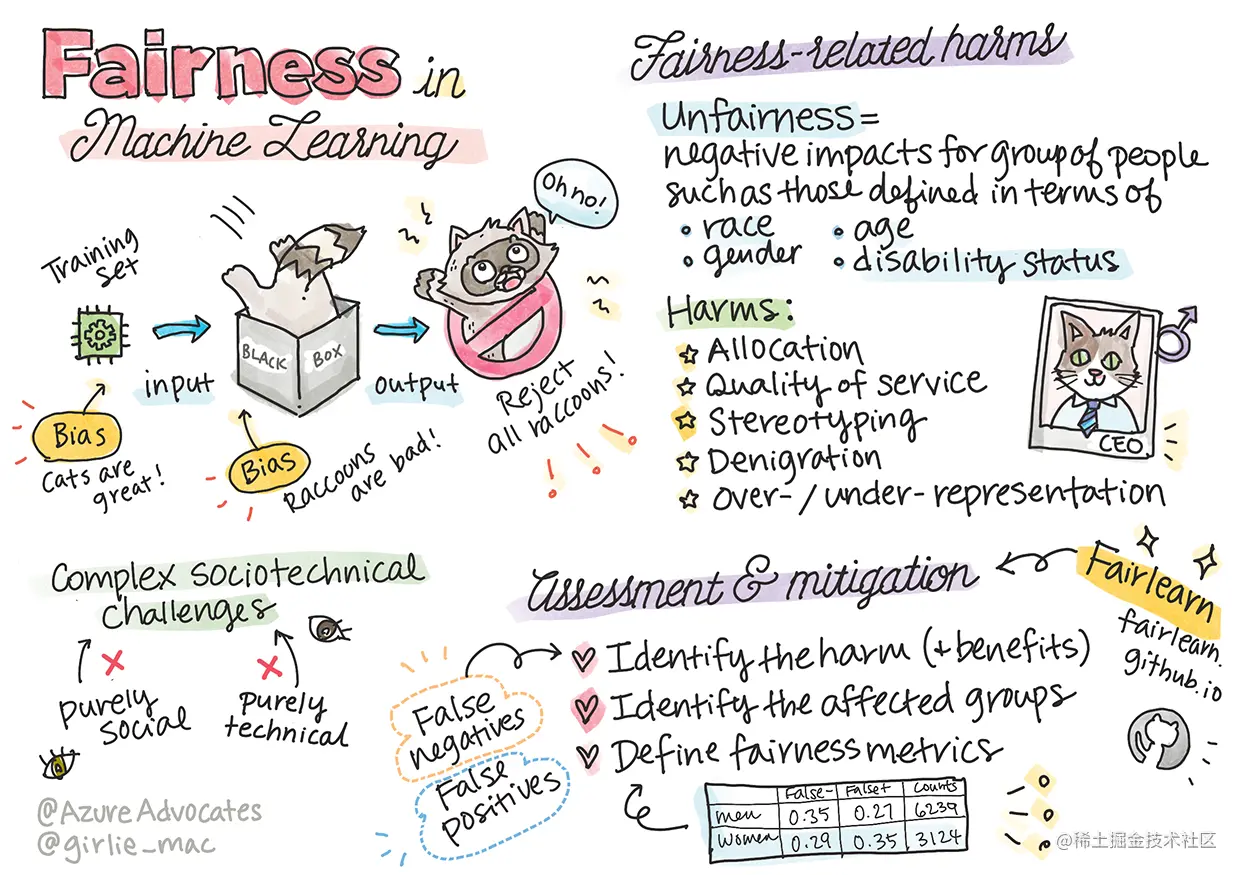 Fairness in
Machine Learning
Training
set
input
BLACK BOX
output
Oh no!
Reject
all raccoons!
Bias
Cats are
great!
Bias
Raccoons
are bad!
Fairness-related harms
Unfairness =
negative impacts for group of people
such as those defined in terms of
• race • age
• gender • disability status
Harms:
Allocation
Quality of service
Stereotyping
Denigration
over- / under-representation
CEO
Complex sociotechnical
challenges
purely
social
purely
technical
Assessment & mitigation
Fairlearn
fairlearn.
github.io
Identify the harm (+ benefits)
Identify the affected groups
Define fairness metrics
False
negatives
False
positives
False- False+ Counts
men 0.35 0.27 6239
Women 0.29 0.35 3124
@AzureAdvocates
@girlie_mac
@稀土掘金技术社区